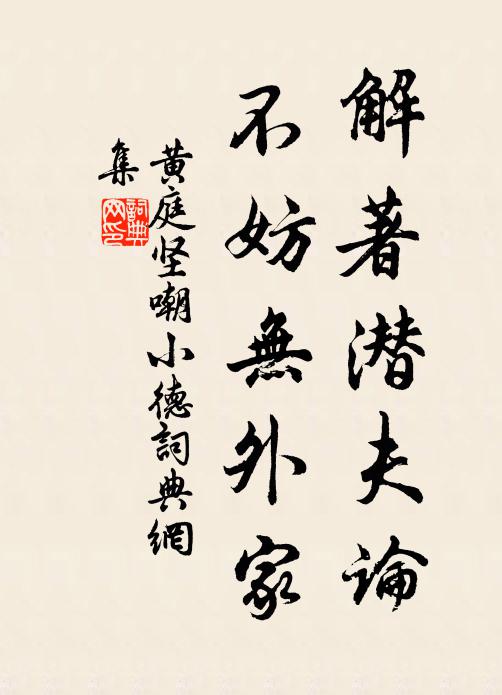 解著潜夫論
不妨無外家
黄庭坚嘲小德詞典網
集
詞典網印